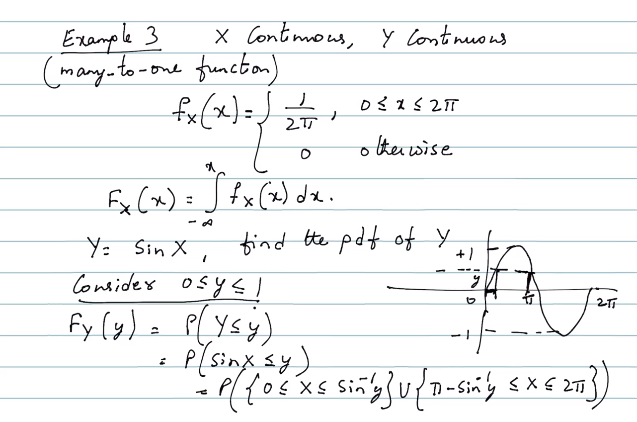 Example 3 X Continuous, Y Continuous
(many-to-one function)
f_X(x) = { 1/2π, 0 ≤ x ≤ 2π
0 otherwise
F_X(x) = ∫_{-∞}^{x} f_X(x) dx.
Y = Sin X, find the pdf of Y
+1
y
0 π 2π
-1
Consider 0 ≤ y ≤ 1
F_Y(y) = P(Y ≤ y)
= P(sin X ≤ y)
= P({0 ≤ X ≤ sin⁻¹y} ∪ {π - sin⁻¹y ≤ X ≤ 2π})